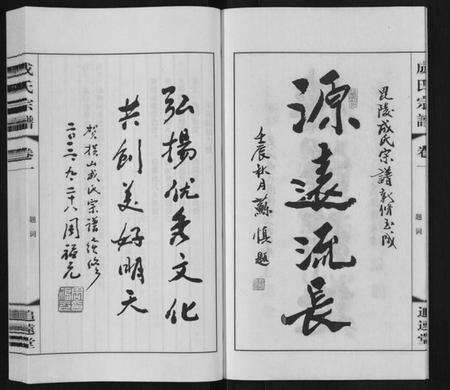 成氏宗譜
卷一
題詞
追遠堂
毘陵成氏宗譜新修玉成
源遠流長
壬辰秋月蘇慎題
弘揚优秀文化
共創美好明天
賀横山成氏宗譜之续修
二〇一二·九·二十八周裕元
成氏宗譜
卷一
題詞
追遠堂